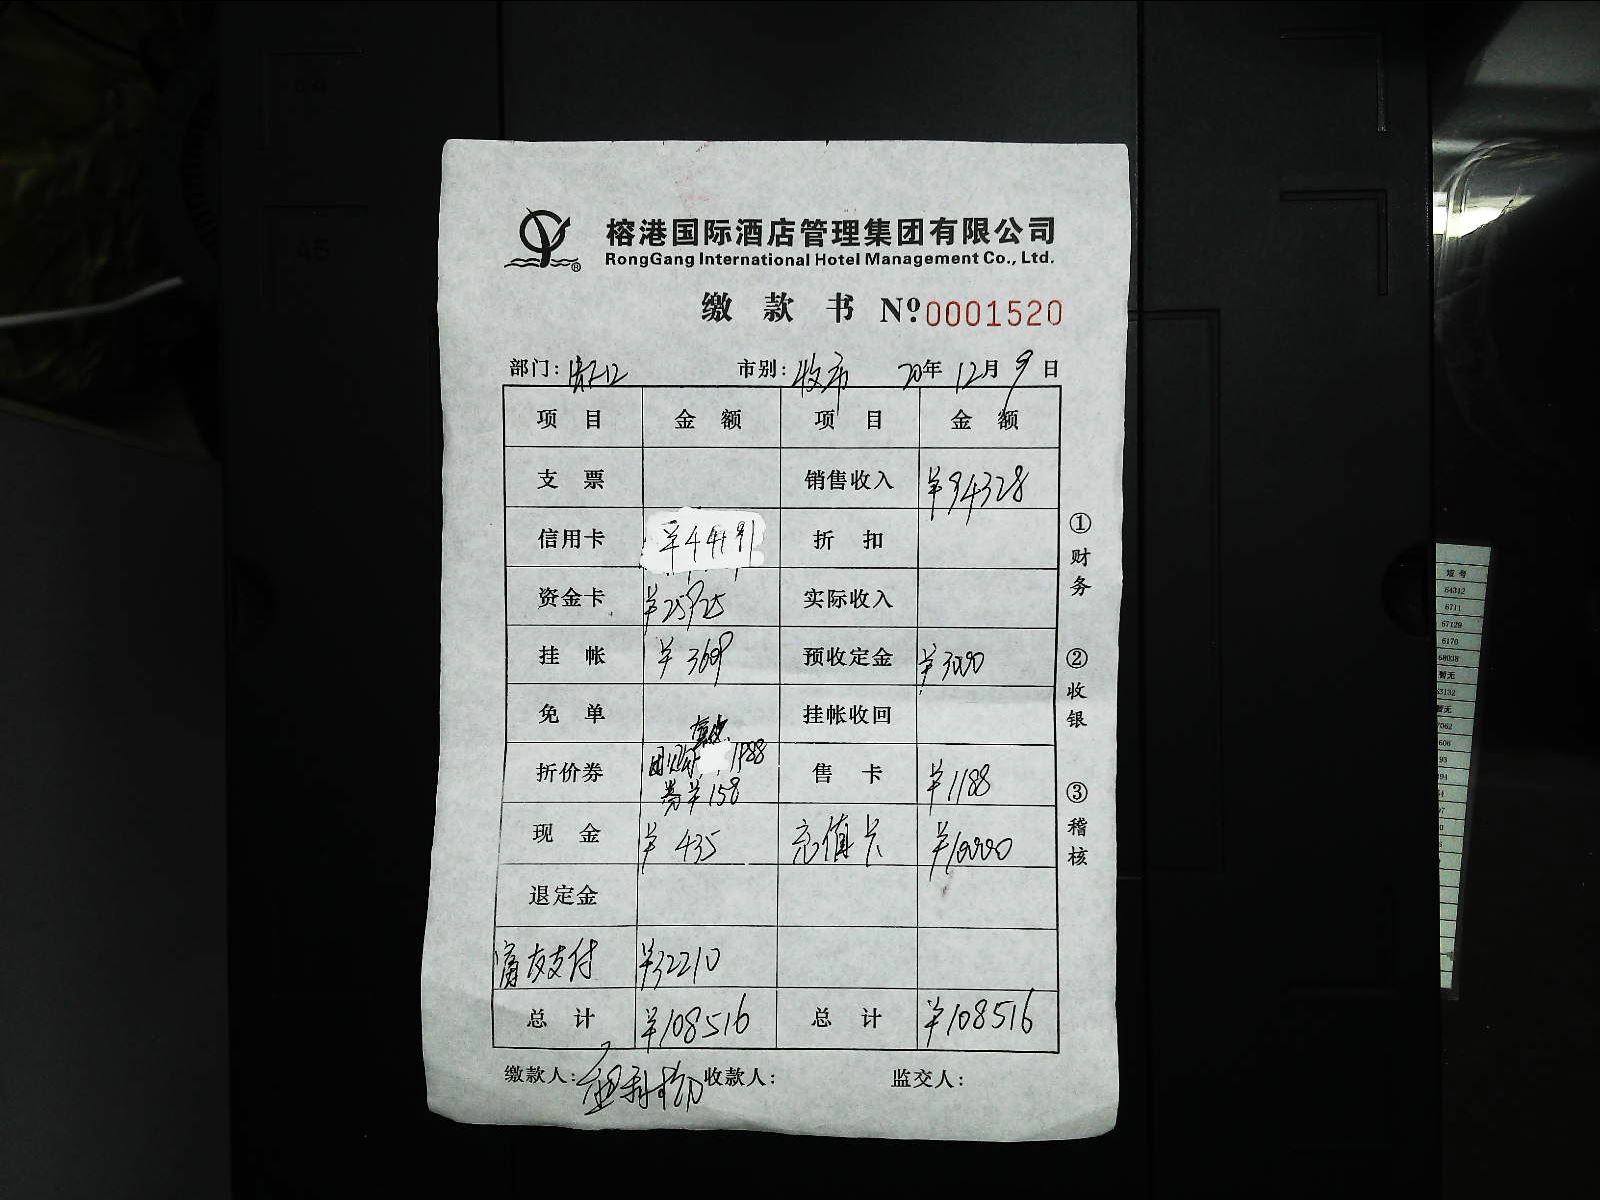 榕港国际酒店管理集团有限公司
RongGang International Hotel Management Co., Ltd.
缴款书 Nº 0001520
部门: 市别: 收市 20年 12月 9日
项目 金额 项目 金额
支票 销售收入 ¥94328
信用卡 ¥44191 折扣
资金卡 ¥25925 实际收入
挂帐 ¥3609 预收定金 ¥3000
免单 挂帐收回
折价券 团购 1988 售卡 ¥1188
券¥158
现金 ¥435 充值卡 ¥10000
退定金
支付 ¥32210
总计 ¥108516 总计 ¥108516
缴款人: 收款人: 监交人:
①财务
②收银
③稽核
短号
64312
6711
67129
6176
68038
暂无
暂无